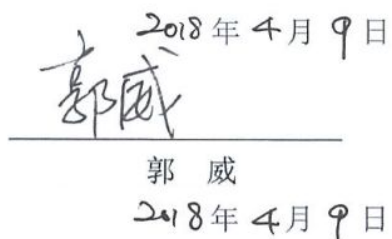 2018年4月9日
郭威
郭 威
2018年4月9日